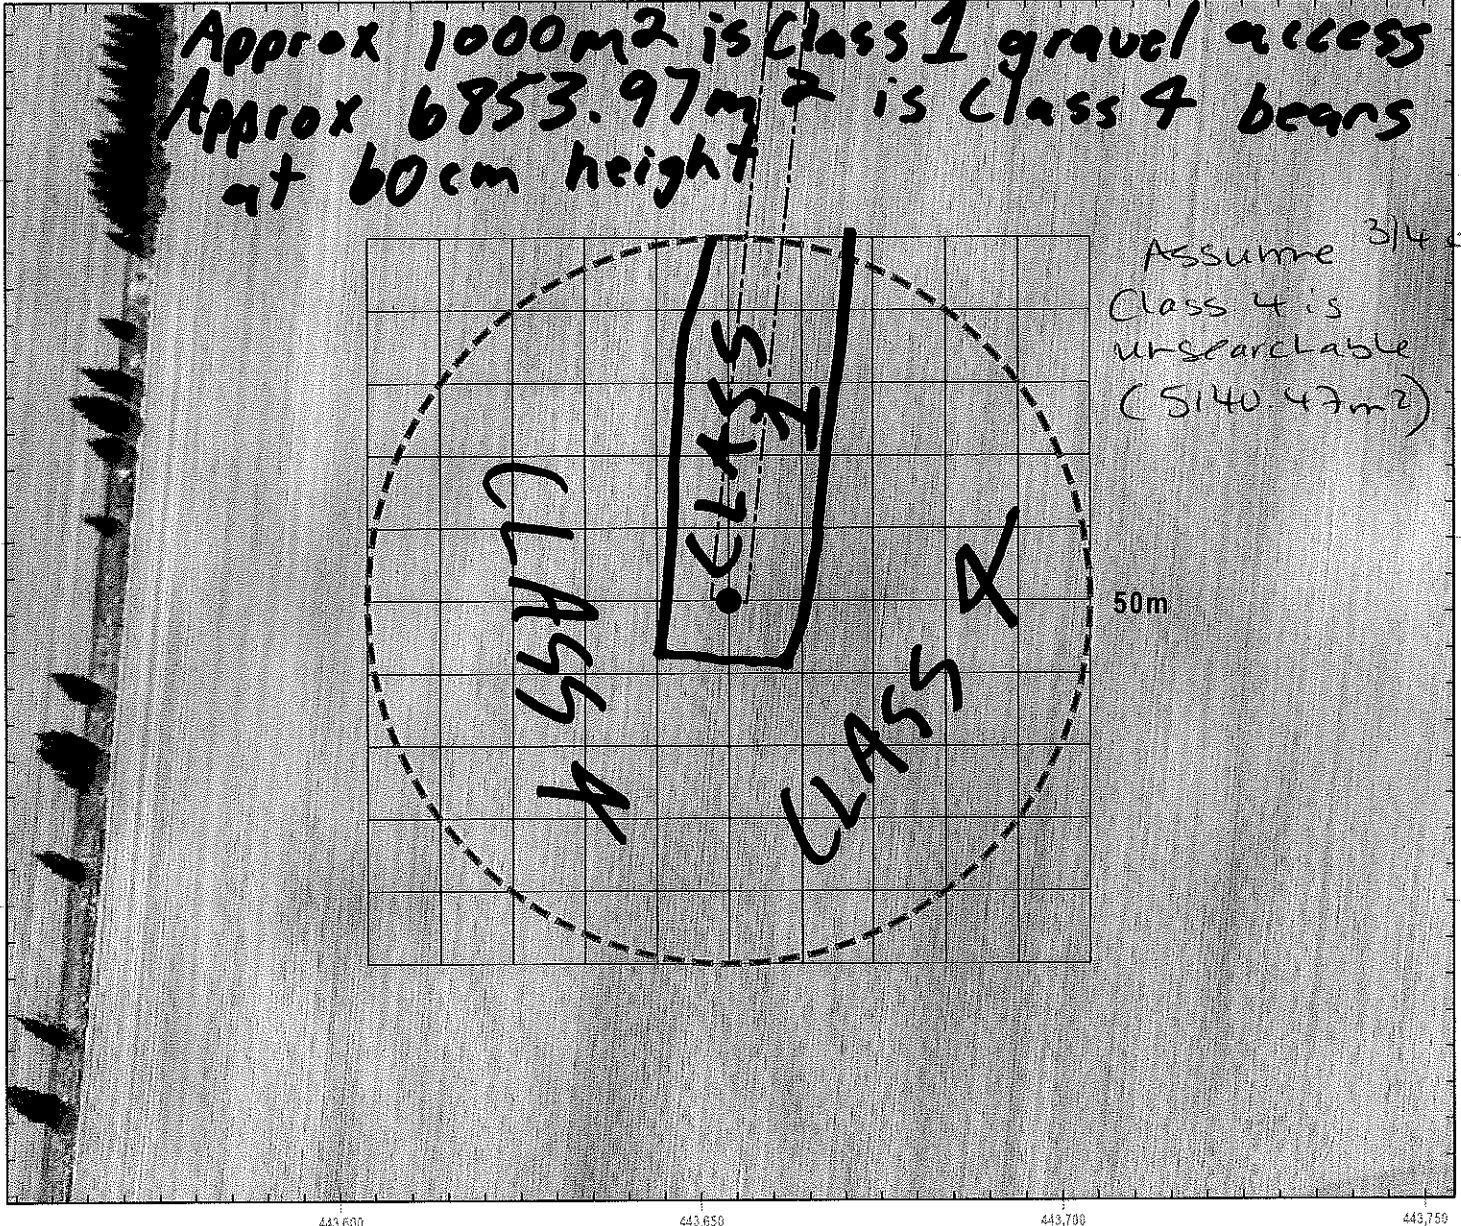 Approx 1000m2 is Class 1 gravel access
Approx 6853.97m2 is Class 4 beans
at 60cm height
Assume 3/4
Class 4 is
unsearchable
(5140.47m2)
CLASS 1
CLASS 4
CLASS 4
50m
443,600 443,650 443,700 443,750